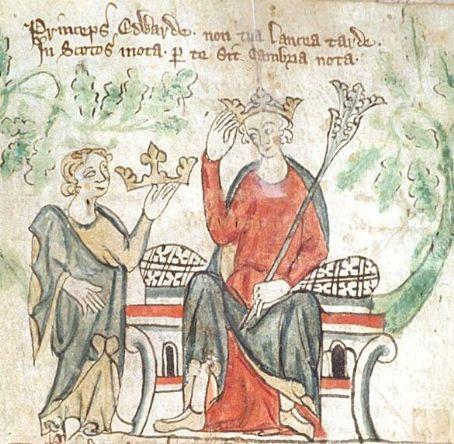 Princeps Edwarde · non tua lancea tarde ·
In Scotos mota · p te sit Cambria nota ·